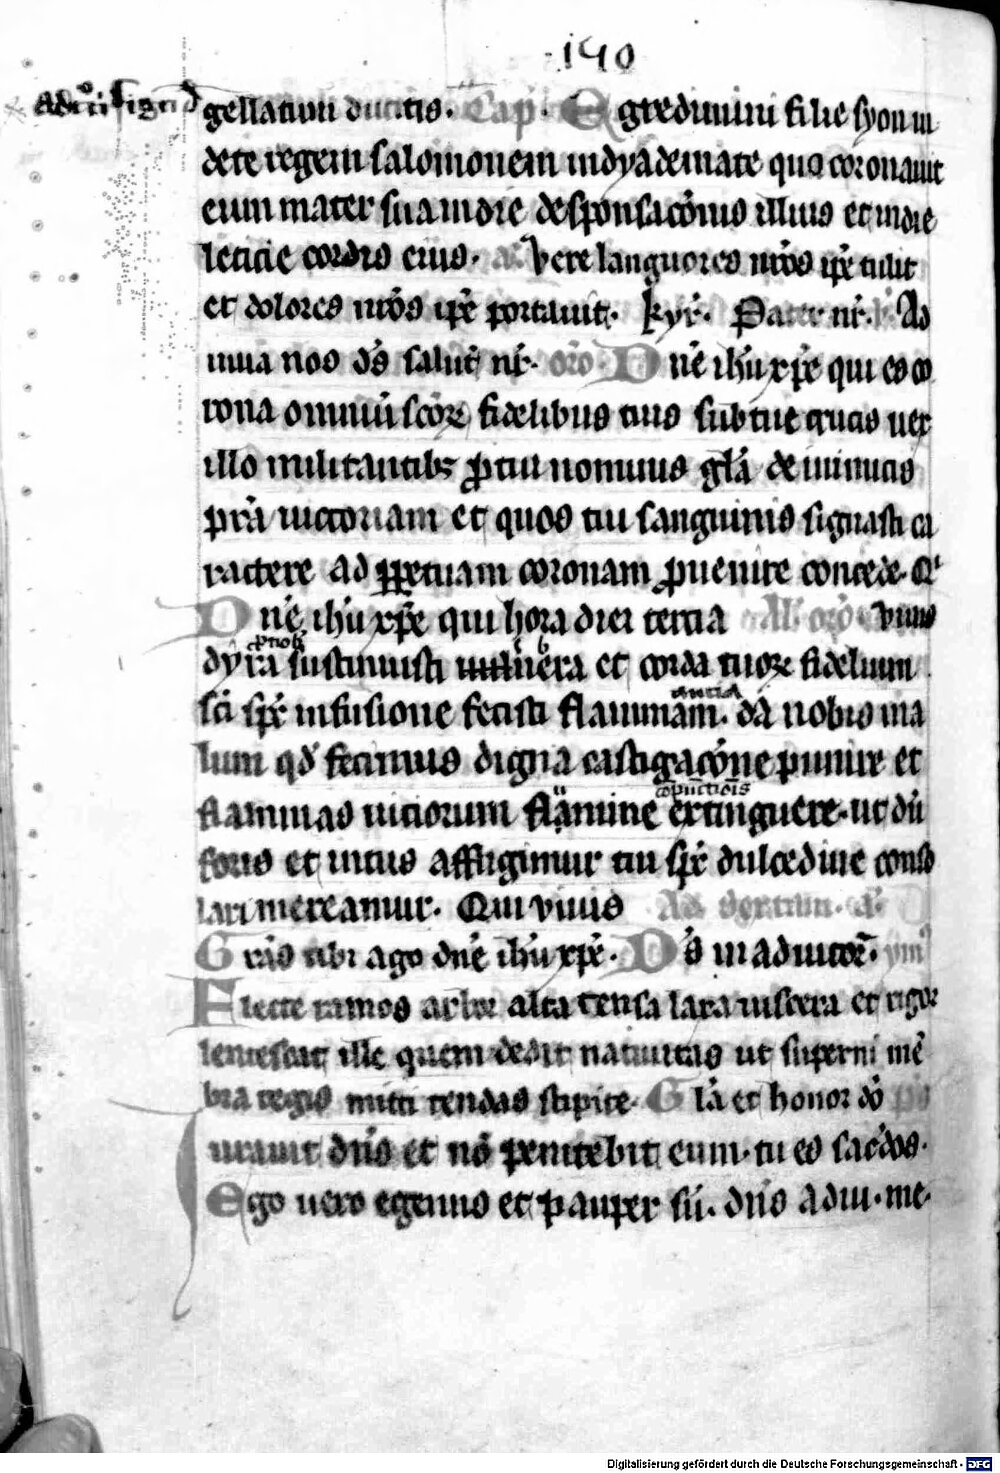 140
gellatum ducitis. Cap. Egredimini filie syon ui
dete regem salomonem indyademate quo coronauit
eum mater sua indie desponsacōnis illius et indie
leticie cordis eius. a. Vere languores nr̄os ip̄e tulit
et dolores nr̄os ip̄e portauit. kyr̄. Pater nr̄. Ad
iuua nos d̄s salut̄ nr̄. or̄o Dn̄e ih̄u xp̄e qui es co
rona omniū sc̄oꝝ fidelibus tuis sub tue crucis uex
illo militantibꝫ ꝓ tui nominis gl̄a de inimicis
pr̄a uictoriam et quos tui sanguinis signasti ca
ractere ad ꝑpetuam coronam ꝓuenire concede. Qͥ
Dn̄e ih̄u xp̄e qui hora diei tercia Al. or̄o
dyra sustinuisti u̇bera et corda tuoꝝ fidelium
sc̄i sp̄c infusione fecisti flammam. da nobis ma
lum qd̄ fecimus digna castigacōne punire et
cōpūctiōis
flammas uiciorum flamine extinguere. ut dū
foris et intus affligimur tui sp̄c dulcedine conso
lari mereamur. Qui viuis Ad sextam. a.
Gr̄as tibi ago dn̄e ih̄u xp̄e. D̄s in adiutor̄. ymͥ
Flecte ramos arbor alta tensa laxa uiscera et rigor
lentescat ille quem dedit natiuitas ut superni mē
bra regis mitti tendas stipite. Gl̄a et honor dō p̄s
Iurauit dn̄s et nō penitebit eum. tu es sac̄dos.
Ego uero egenus et pauper sū. dn̄s adiu. me.
Digitalisierung gefördert durch die Deutsche Forschungsgemeinschaft - DFG